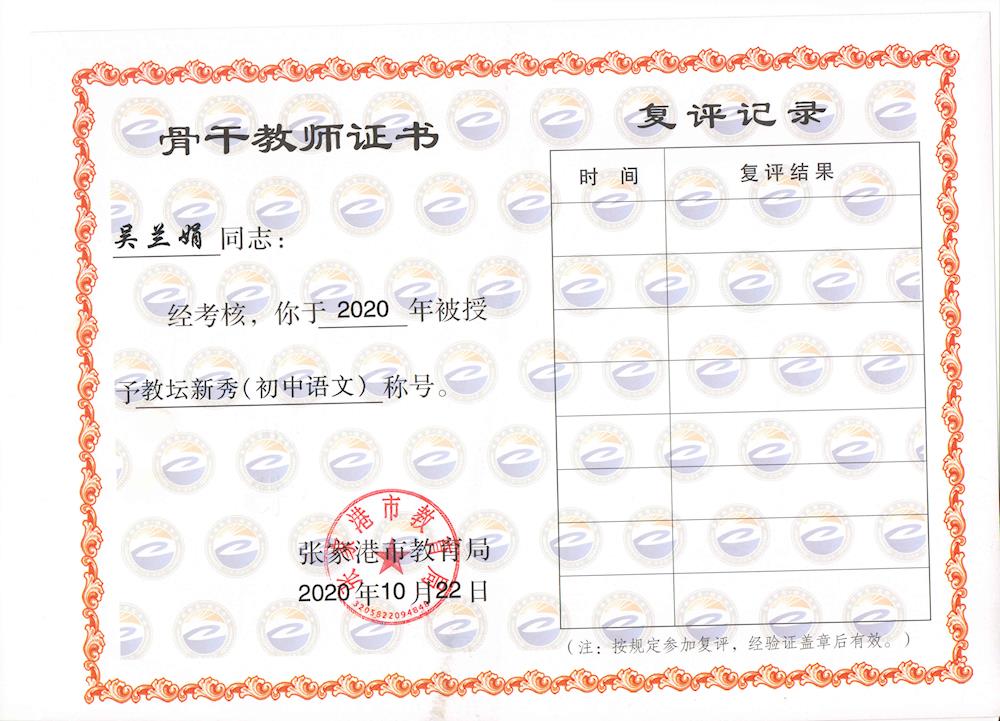 骨干教师证书
吴兰娟 同志：
经考核，你于 2020 年被授
予教坛新秀(初中语文)称号。
张家港市教育局
2020 年10 月22 日
张家港市教育局
3205822094848
复评记录
时 间 复评结果
（注：按规定参加复评，经验证盖章后有效。）